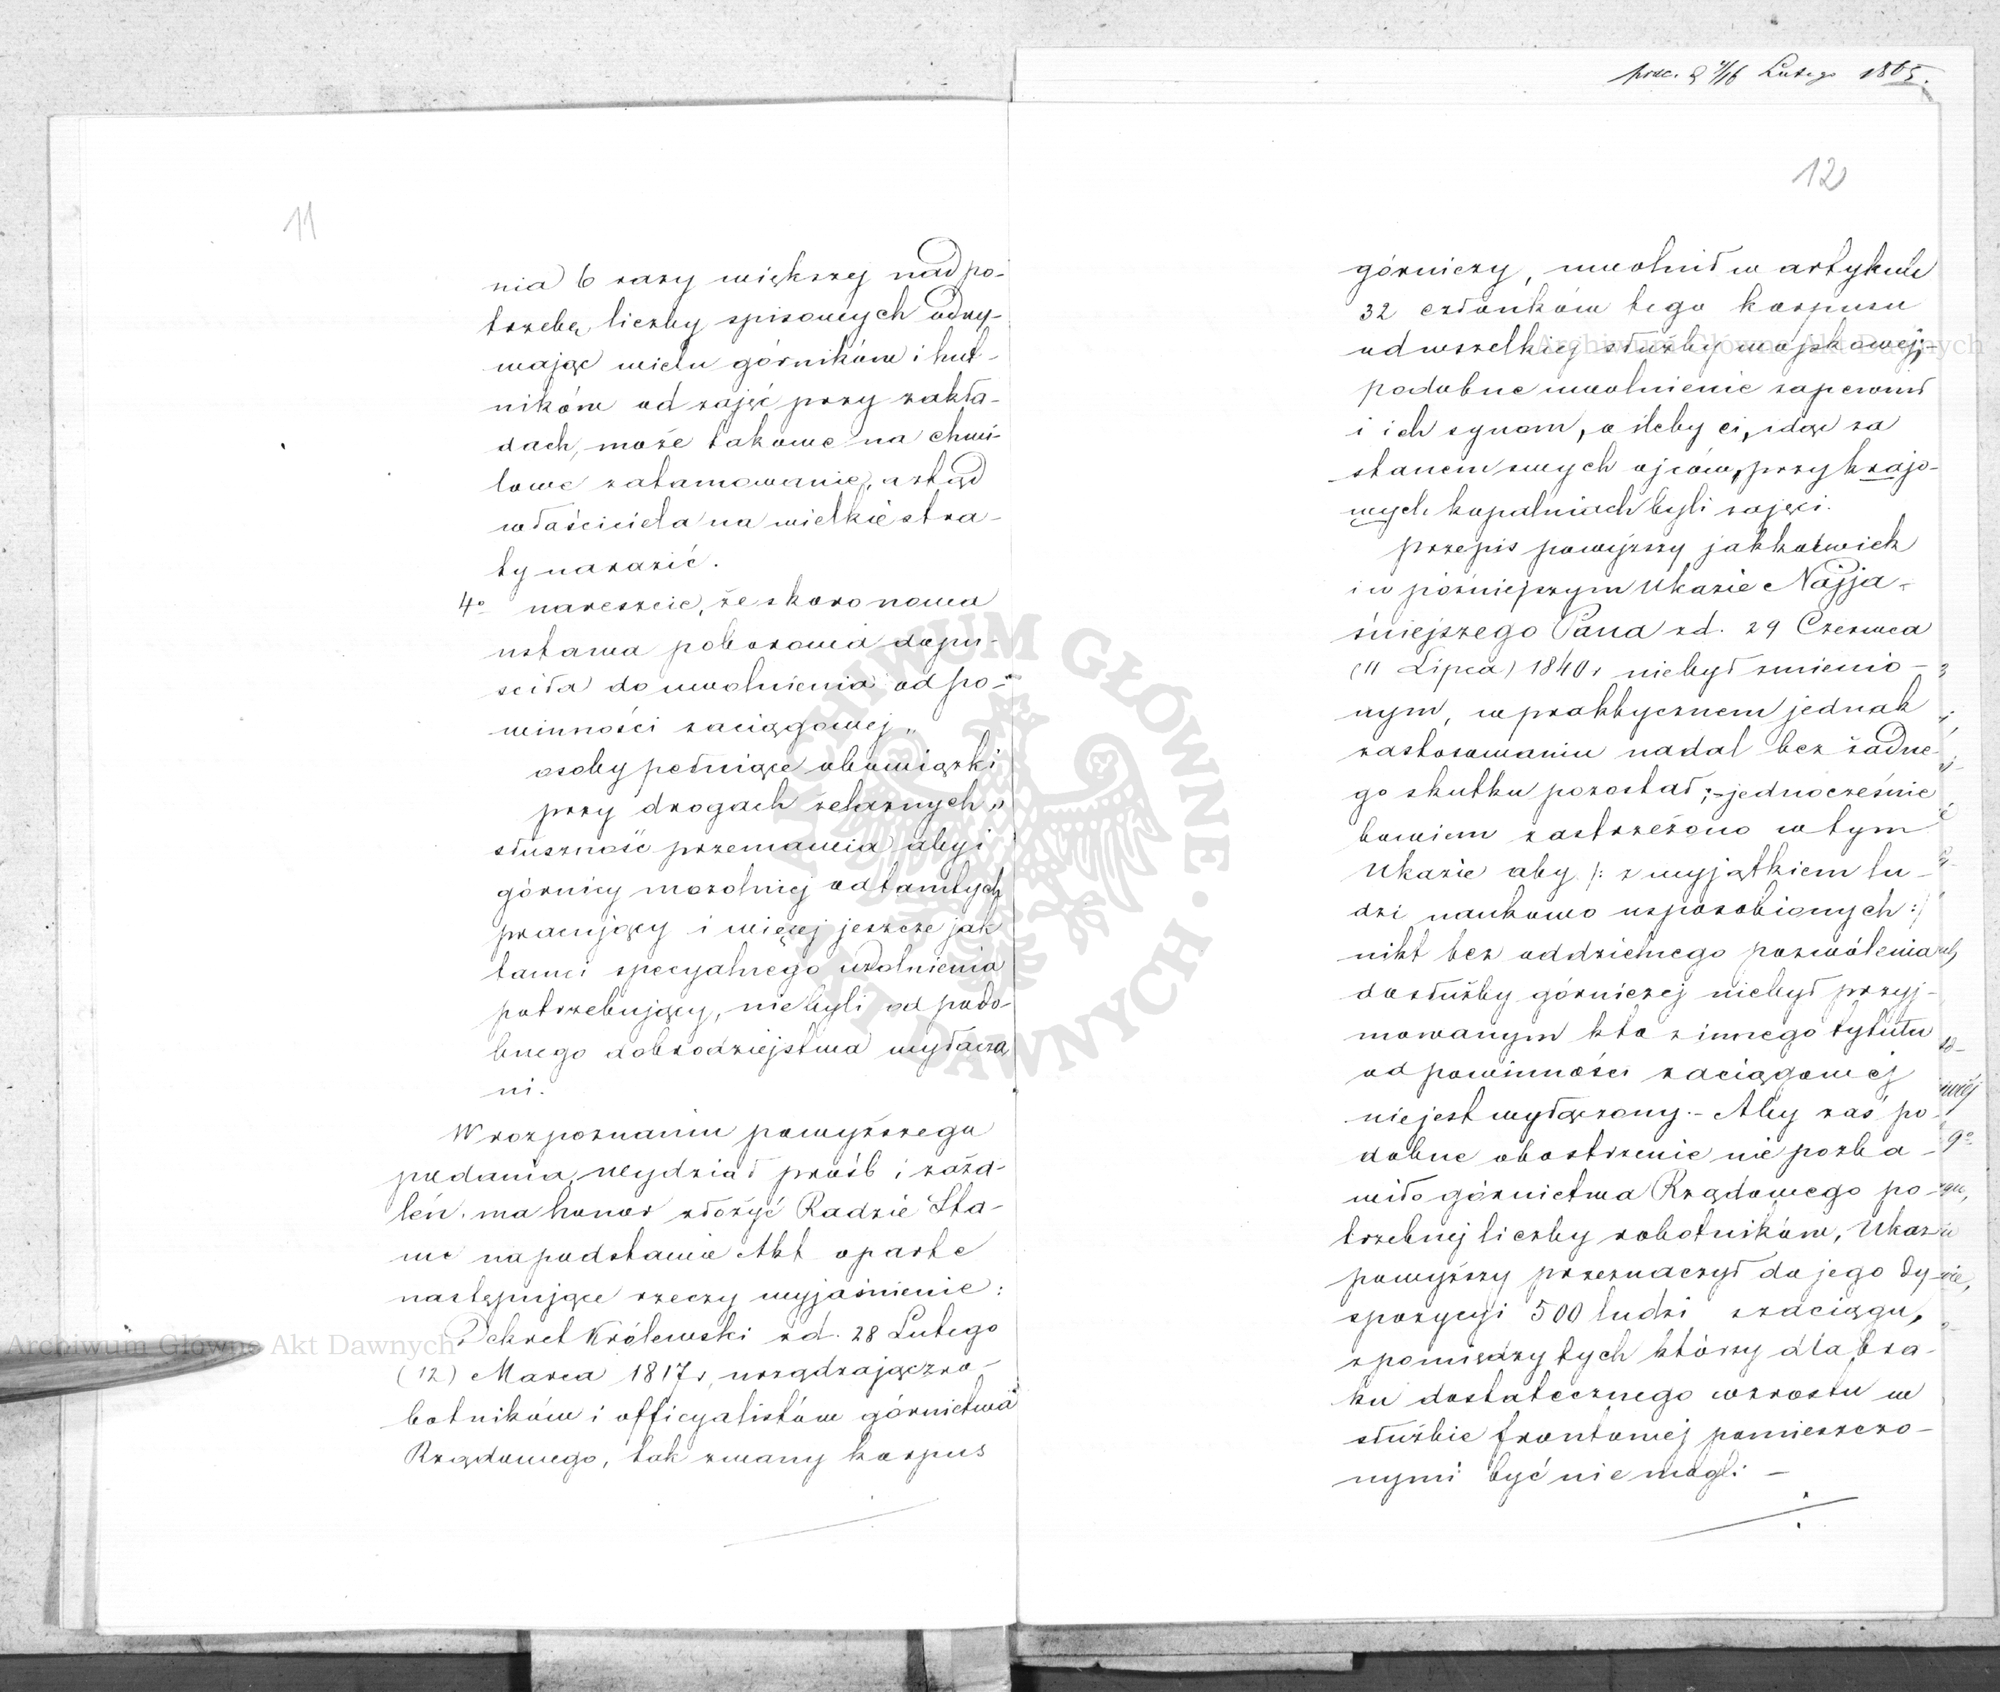 11
nia 6 razy większej nad po-
trzebę liczby spisowych odry-
wając wielu górników i hut-
ników od zajęć przy zakła-
dach, może takowe na chwi-
lowe zatamowanie, a ztąd
właściciela na wielkie stra-
ty narazić.
4o nareszcie, że skoro nowa
ustawa poborowa dopu-
sciła do uwolnienia od po-
winności zaciągowej „
osoby pełniące obowiązki
przy drogach żelaznych „
słuszność przemawia aby i
górnicy mozolniej od tamtych
pracujący i więcej jeszcze jak
tamci specyalnego uzdolnienia
potrzebujący, niebyli od podo-
bnego dobrodziejstwa wyłącza
ni.
W rozpoznaniu powyższego
podania, Wydział próśb i zaża-
leń ma honor złożyć Radzie Sta-
nu na podstawie Akt oparte
następujące rzeczy wyjaśnienie:
Dekret Królewski z d. 28 Lutego
(12) Marca 1817 r, urządzając z ro-
botników i officyalistów górnictwa
Rządowego, tak zwany korpus
Lutego 1865.
12
górniczy, uwolnił w artykule
32 członków tego korpusu
od wszelkiej służby wojskowej;
podobne uwolnienie zapewnił
i ich synom, o ileby ci, idąc za
stanem swych ojców, przy krajo-
wych kopalniach byli zajęci.
Przepis powyższy jakkolwiek
i w późniejszym Ukazie Najja-
śniejszego Pana z d. 29 Czerwca
(11 Lipca) 1840 r niebył zmienio-
nym, w praktycznem jednak
zastosowaniu nadal bez żadne-
go skutku pozostał; - jednocześnie
bowiem zastrzeżono w tym
Ukazie aby /: z wyjątkiem lu-
dzi naukowo usposobionych :/
nikt bez oddzielnego pozwolenia
do służby górniczej niebył przyj-
mowanym kto z innego tytułu
od powinności zaciągowej
niejest wyłączony. - Aby zaś po-
dobne obostrzenie nie pozba-
wiło górnictwa Rządowego po-
trzebnej liczby robotników, Ukaz
powyższy przeznaczył do jego dy-
spozycyi 500 ludzi z zaciągu,
z pomiędzy tych którzy dla bra-
ku dostatecznego wzrostu w
służbie frontowej pomieszczo-
nymi być nie mogli -
Archiwum Główne Akt Dawnych
Archiwum Główne Akt Dawnych
ARCHIWUM GŁÓWNE AKT DAWNYCH